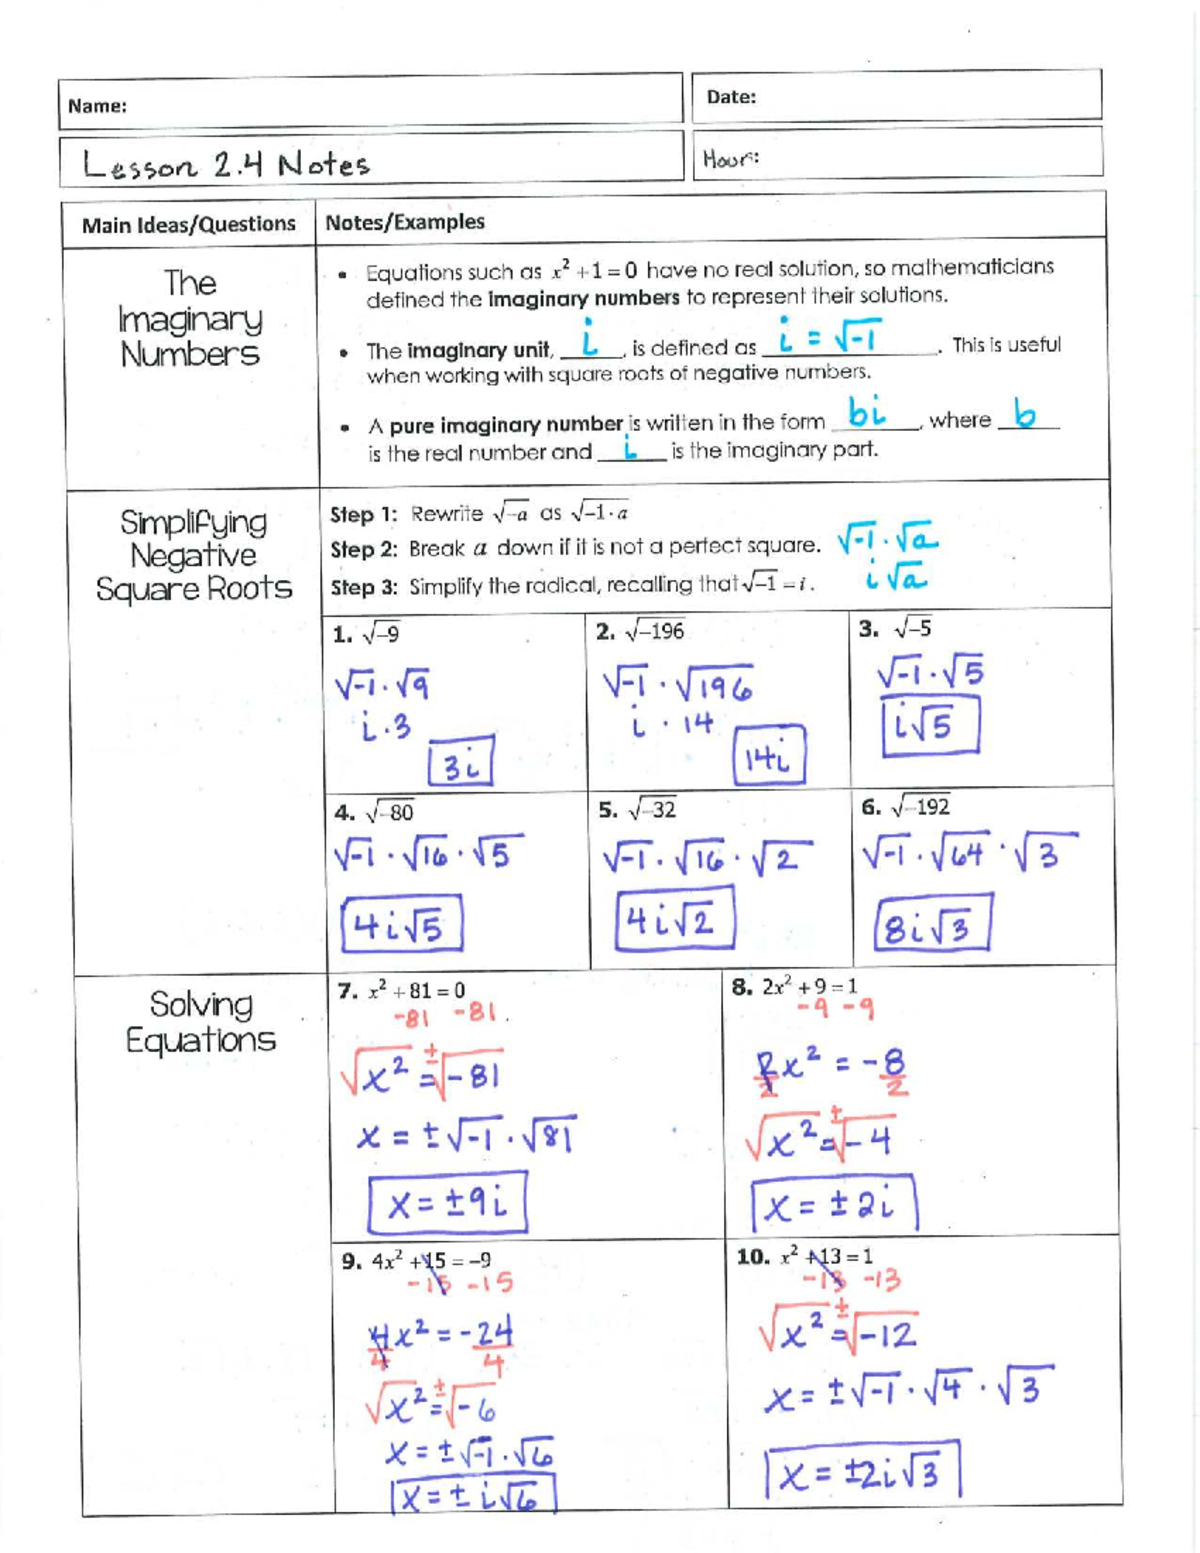 Name:
Date:
Lesson 2.4 Notes
Hour:
Main Ideas/Questions
Notes/Examples
The
Imaginary
Numbers
• Equations such as x² + 1 = 0 have no real solution, so mathematicians
defined the imaginary numbers to represent their solutions.
• The imaginary unit, i, is defined as i = √-1. This is useful
when working with square roots of negative numbers.
• A pure imaginary number is written in the form bi, where b
is the real number and i is the imaginary part.
Simplifying
Negative
Square Roots
Step 1: Rewrite √-a as √-1·a
Step 2: Break a down if it is not a perfect square. √-1 · √a
Step 3: Simplify the radical, recalling that √-1 = i. i√a
1. √-9
√-1 · √9
i · 3
3i
2. √-196
√-1 · √196
i · 14
14i
3. √-5
√-1 · √5
i√5
4. √-80
√-1 · √16 · √5
4i√5
5. √-32
√-1 · √16 · √2
4i√2
6. √-192
√-1 · √64 · √3
8i√3
Solving
Equations
7. x² + 81 = 0
-81 -81
√x² = ±√-81
x = ±√-1 · √81
x = ±9i
8. 2x² + 9 = 1
-9 -9
2x² = -8
2 2
√x² = ±√-4
x = ±2i
9. 4x² + 15 = -9
-15 -15
4x² = -24
4 4
√x² = ±√-6
x = ±√-1 · √6
x = ± i√6
10. x² + 13 = 1
-13 -13
√x² = ±√-12
x = ±√-1 · √4 · √3
x = ±2i√3